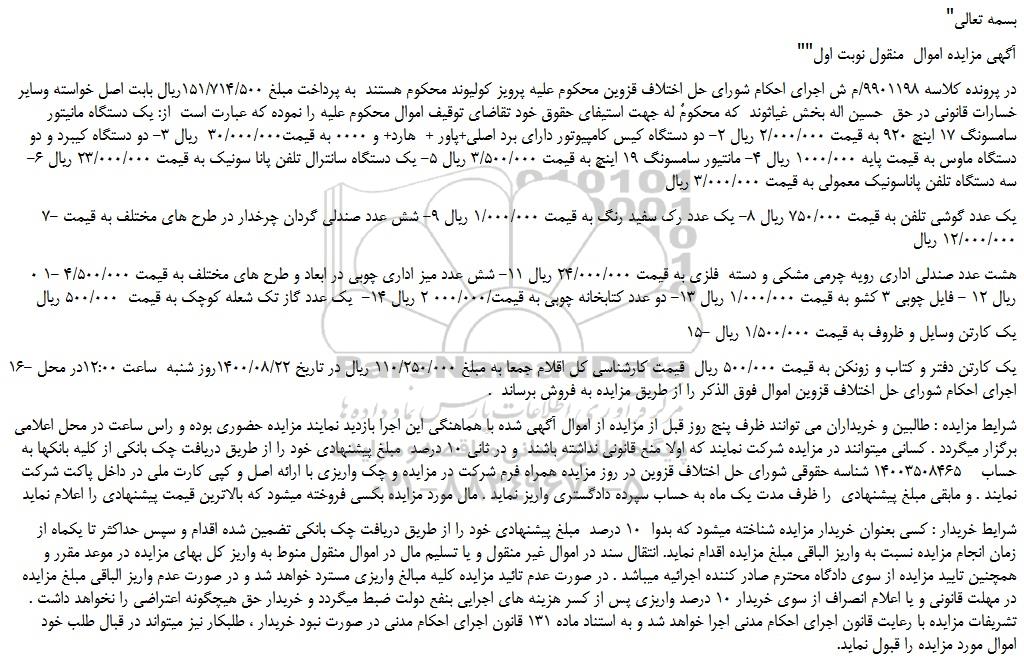 بسمه تعالی"
آگهی مزایده اموال  منقول نوبت اول""
در پرونده کلاسه ۹۹۰۱۱۹۸/م ش اجرای احکام شورای حل اختلاف قزوین محکوم علیه پرویز کولیوند محکوم هستند  به پرداخت مبلغ ۱۵۱/۷۱۴/۵۰۰ریال بابت اصل خواسته وسایر
خسارات قانونی در حق  حسین اله بخش غیاثوند  که محکومٌ له جهت استیفای حقوق خود تقاضای توقیف اموال محکوم علیه را نموده که عبارت است  از: یک دستگاه مانیتور
سامسونگ ۱۷ اینچ ۹۲۰ به قیمت ۲/۰۰۰/۰۰۰ ریال ۲- دو دستگاه کیس کامپیوتور دارای برد اصلی+پاور +  هارد+ و ۰۰۰۰ به قیمت۳۰/۰۰۰/۰۰۰  ریال ۳- دو دستگاه کیبرد و دو
دستگاه ماوس به قیمت پایه ۱۰۰۰/۰۰۰ ریال ۴- مانتیور سامسونگ ۱۹ اینچ به قیمت ۳/۵۰۰/۰۰۰ ریال ۵- یک دستگاه سانترال تلفن پانا سونیک به قیمت ۲۳/۰۰۰/۰۰۰ ریال ۶-
سه دستگاه تلفن پاناسونیک معمولی به قیمت ۳/۰۰۰/۰۰۰ ریال
یک عدد گوشی تلفن به قیمت ۷۵۰/۰۰۰ ریال ۸- یک عدد رک سفید رنگ به قیمت ۱/۰۰۰/۰۰۰ ریال ۹- شش عدد صندلی گردان چرخدار در طرح های مختلف به قیمت -۷
۱۲/۰۰۰/۰۰۰ ریال
هشت عدد صندلی اداری رویه چرمی مشکی و دسته  فلزی به قیمت ۲۴/۰۰۰/۰۰۰ ریال ۱۱- شش عدد میز اداری چوبی در ابعاد و طرح های مختلف به قیمت ۴/۵۰۰/۰۰۰ -۱ ۰
ریال ۱۲ - فایل چوبی ۳ کشو به قیمت ۱/۰۰۰/۰۰۰ ریال ۱۳- دو عدد کتابخانه چوبی به قیمت/۰۰۰/۰۰۰ ۲ ریال ۱۴-  یک عدد گاز تک شعله کوچک به قیمت  ۵۰۰/۰۰۰ ریال
یک کارتن وسایل و ظروف به قیمت ۱/۵۰۰/۰۰۰ ریال -۱۵
یک کارتن دفتر و کتاب و زونکن به قیمت ۵۰۰/۰۰۰ ریال  قیمت کارشناسی کل اقلام جمعا به مبلغ ۱۱۰/۲۵۰/۰۰۰ ریال در تاریخ ۱۴۰۰/۰۸/۲۲روز شنبه  ساعت ۱۲:۰۰در محل -۱۶
اجرای احکام شورای حل اختلاف قزوین اموال فوق الذکر را از طریق مزایده به فروش برساند  .
شرایط مزایده : طالبین و خریداران می توانند ظرف پنج روز قبل از مزایده از اموال آگهی شده با هماهنگی این اجرا بازدید نمایند مزایده حضوری بوده و راس ساعت در محل اعلامی
برگزار میگردد . کسانی میتوانند در مزایده شرکت نمایند که اولا منع قانونی نداشته باشند  و در ثانی ۱۰ درصد  مبلغ پیشنهادی خود را از طریق دریافت چک بانکی از کلیه بانکها به
حساب     ۱۴۰۰۳۵۰۸۴۶۵ شناسه حقوقی شورای حل اختلاف قزوین در روز مزایده همراه فرم شرکت در مزایده و چک واریزی با ارائه اصل و کپی کارت ملی در داخل پاکت شرکت
نمایند . و مابقی مبلغ پیشنهادی  را ظرف مدت یک ماه به حساب سپرده دادگستری واریز نماید . مال مورد مزایده بکسی فروخته میشود که بالاترین قیمت پیشنهادی را اعلام نماید
شرایط خریدار : کسی بعنوان خریدار مزایده شناخته میشود که بدوا  ۱۰ درصد  مبلغ پیشنهادی خود را از طریق دریافت چک بانکی تضمین شده اقدام و سپس حداکثر تا یکماه از
زمان انجام مزایده نسبت به واریز الباقی مبلغ مزایده اقدام نماید. انتقال سند در اموال غیر منقول و یا تسلیم مال در اموال منقول منوط به واریز کل بهای مزایده در موعد مقرر و
همچنین تایید مزایده از سوی دادگاه محترم صادر کننده اجرائیه میباشد . در صورت عدم تائید مزایده کلیه مبالغ واریزی مسترد خواهد شد و در صورت عدم واریز الباقی مبلغ مزایده
در مهلت قانونی و یا اعلام انصراف از سوی خریدار ۱۰ درصد واریزی پس از کسر هزینه های اجرایی بنفع دولت ضبط میگردد و خریدار حق هیچگونه اعتراضی را نخواهد داشت .
تشریفات مزایده با رعایت قانون اجرای احکام مدنی اجرا خواهد شد و به استناد ماده ۱۳۱ قانون اجرای احکام مدنی در صورت نبود خریدار ، طلبکار نیز میتواند در قبال طلب خود
اموال مورد مزایده را قبول نماید.
ParsNamadData
مرکز فرآوری اطلاعات پارس نماد داده ها